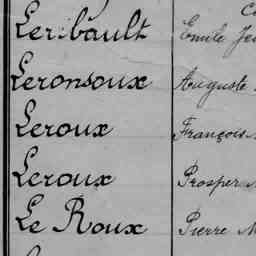 Leribault Emile
Leronsoux Auguste
Leroux François
Leroux Prosper
Le Roux Pierre M